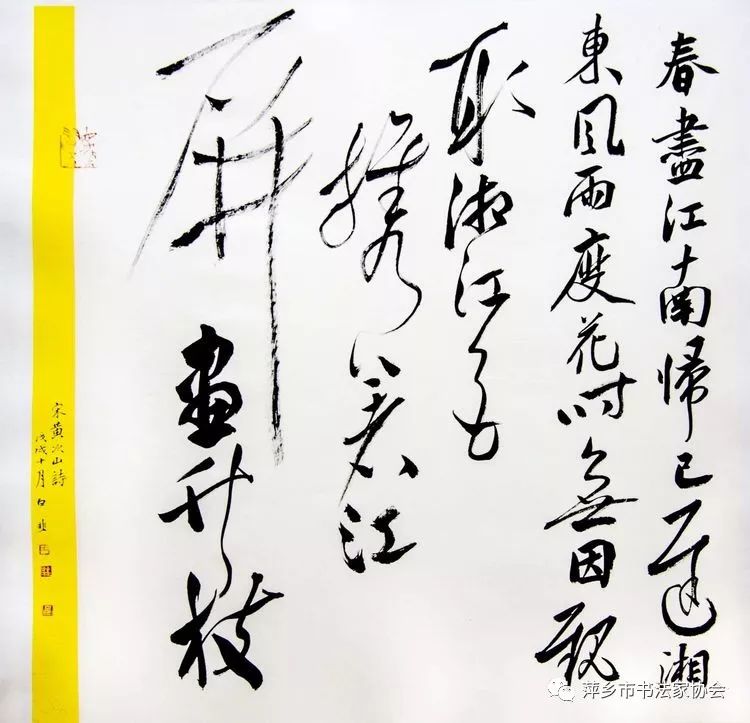 春盡江南歸已遲湘
東風雨度花時無因
取湘江
江
屏畫枝
宋黃次山詩
戊戌十月白
萍乡市书法家协会